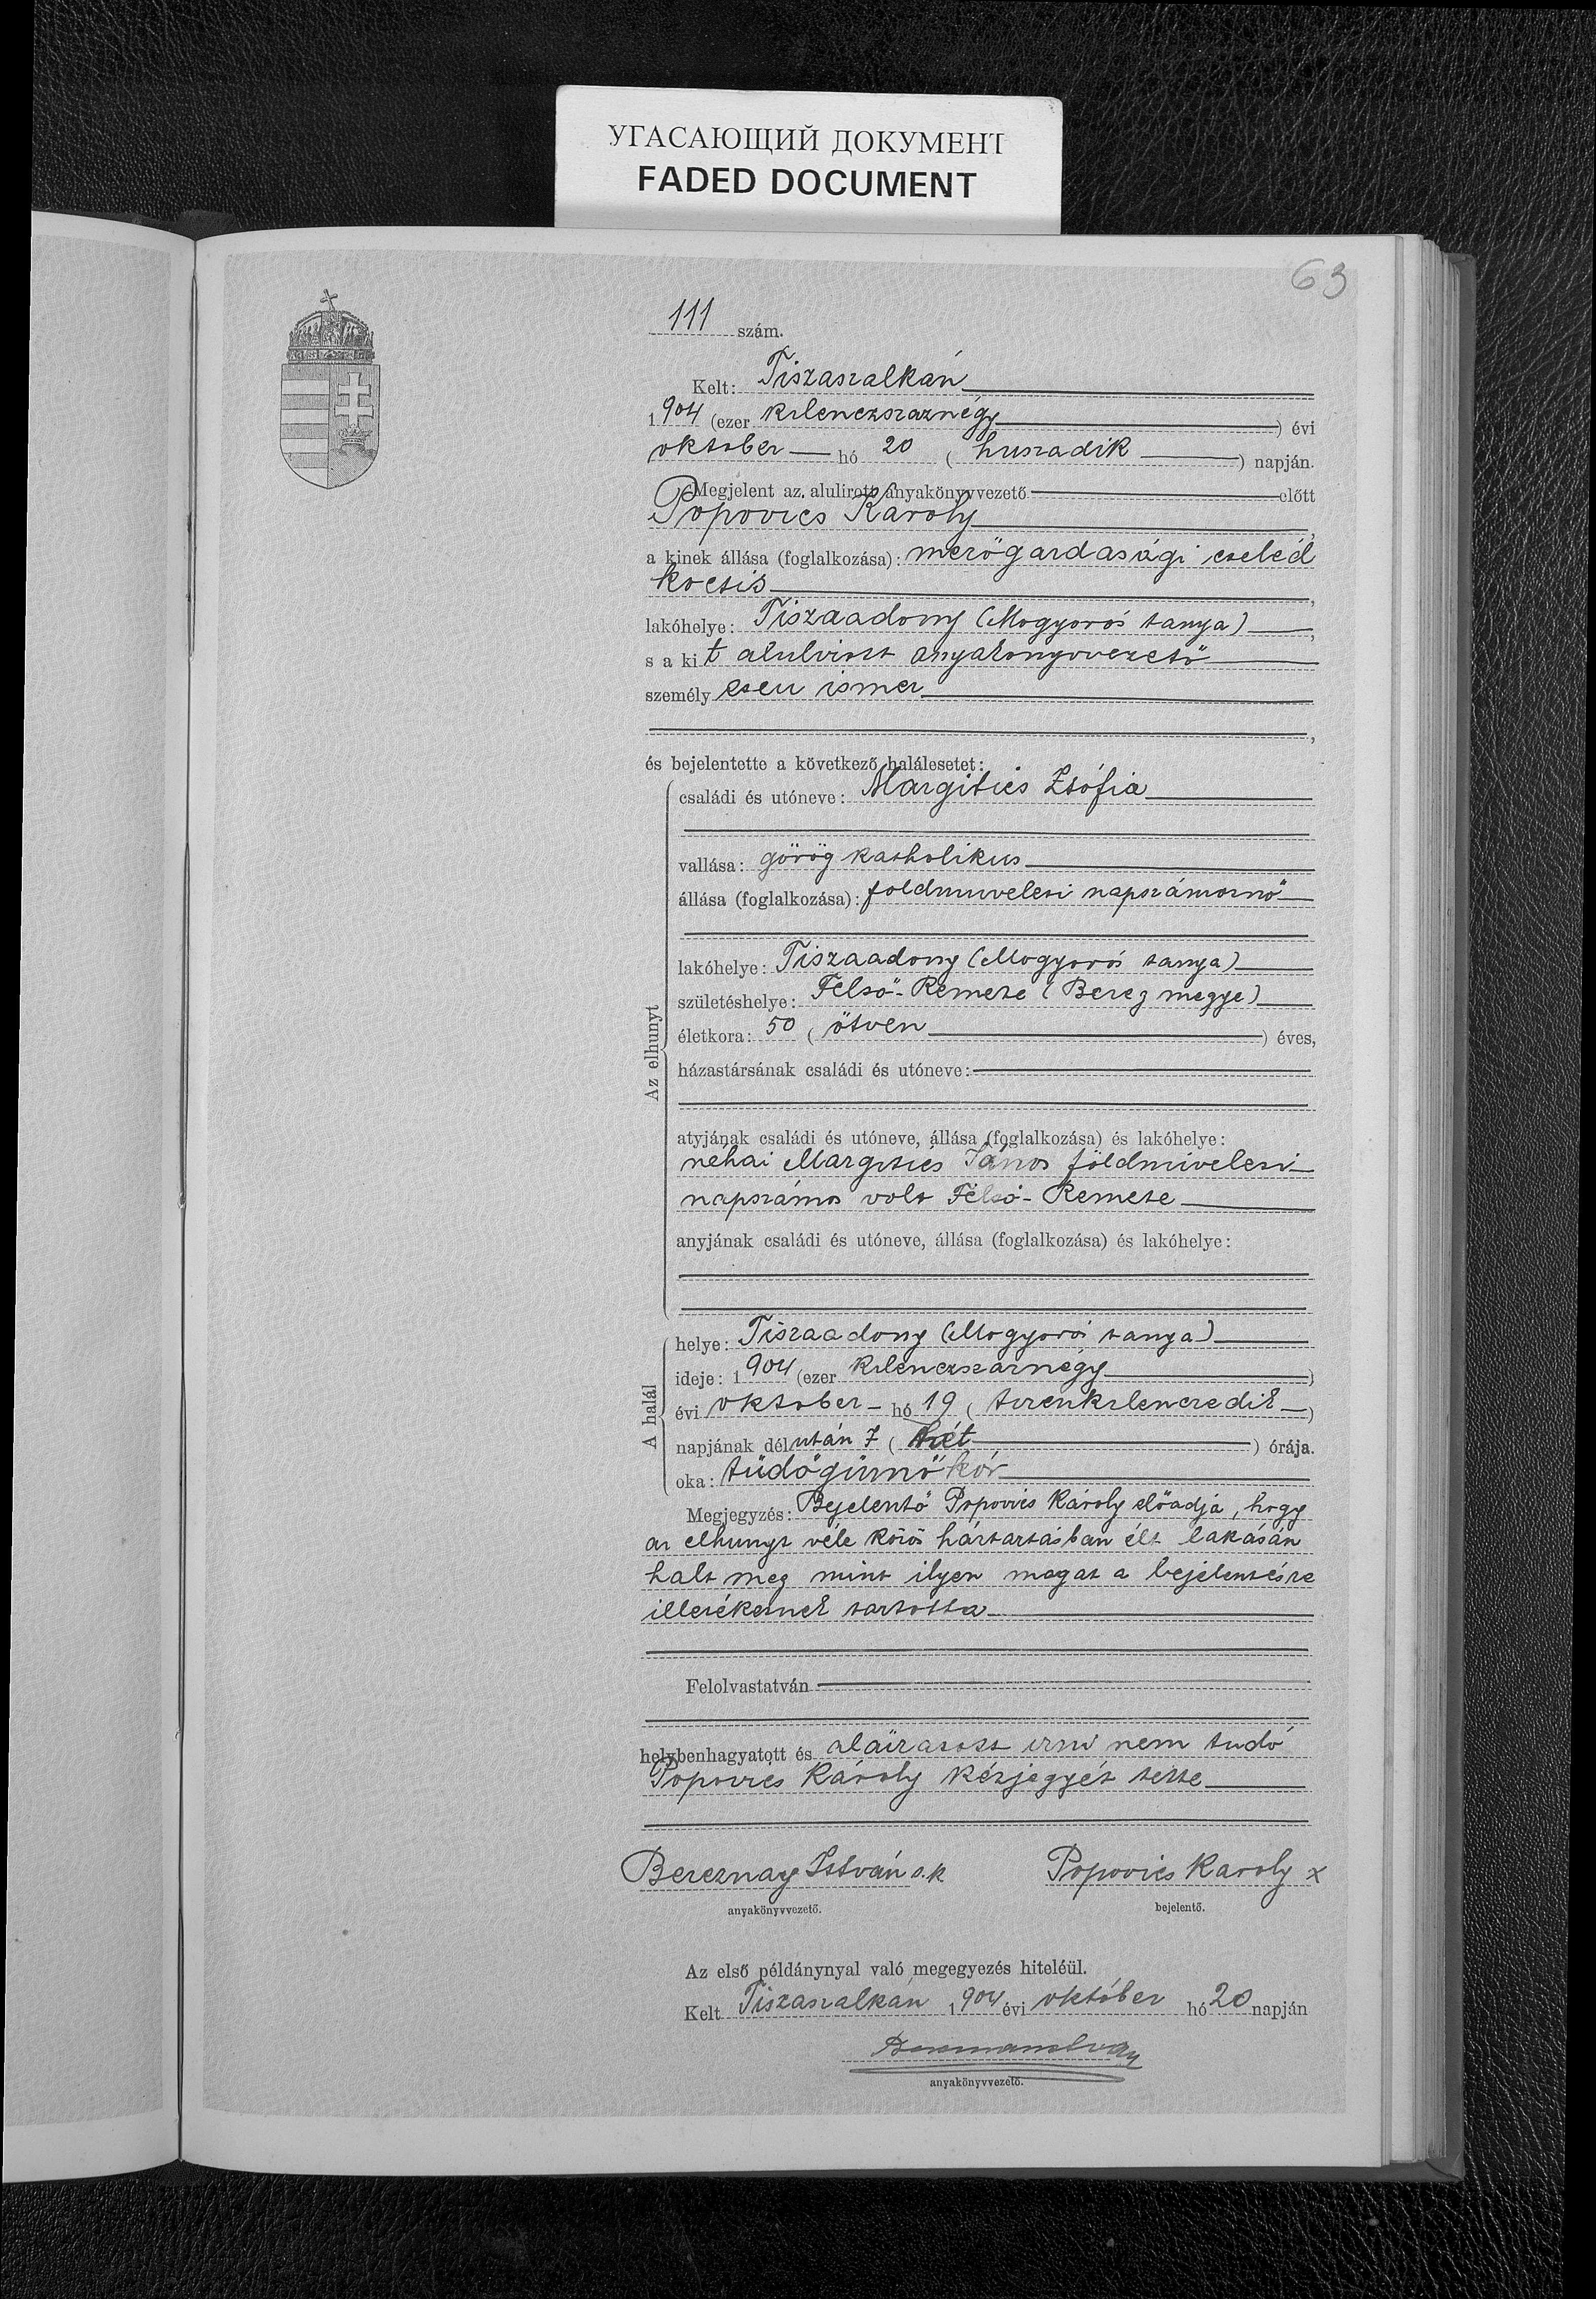 УГАСАЮЩИЙ ДОКУМЕНТ
FADED DOCUMENT
63
111 szám.
Kelt: Tiszaszalkán
1904 (ezer kilenczszaznégy) évi
oktober hó 20 (huszadik) napján.
Megjelent az alulirott anyakönyvvezető előtt
Popovics Károly,
a kinek állása (foglalkozása): mezögazdasági cseléd
kocsis,
lakóhelye: Tiszaadony (Mogyorós tanya),
s a kit alulirott anyakonyvvezetö
személyesen ismer
,
és bejelentette a következő halálesetet:
családi és utóneve: Margitics Zsófia
vallása: görög katholikus
állása (foglalkozása): foldmuvelesi napszámosnö
lakóhelye: Tiszaadony (Mogyorós tanya)
születéshelye: Felsö-Remete (Bereg megye)
Az elhunyt
életkora: 50 (ötven) éves,
házastársának családi és utóneve:
atyjának családi és utóneve, állása (foglalkozása) és lakóhelye:
néhai Margitics János földmivelesi
napszámos volt Felsö-Remete
anyjának családi és utóneve, állása (foglalkozása) és lakóhelye:
helye: Tiszaadony (Mogyorós tanya)
ideje: 1904 (ezer kilenczszáznégy)
A halál
évi oktober hó 19 (tizenkilenczedik)
napjának délután 7 (hét) órája.
oka: tüdögümökór
Megjegyzés: Bejelentö Popovics Károly elöadja, hogy
az elhunyt véle közös háztartásban élt lakásán
halt meg mint ilyen magat a bejelentésre
illetékesnek tartotta
Felolvastatván
helybenhagyatott és aláiratott irni nem tudó
Popovics Károly kézjegyét tette
Bereznay István s.k Popovics Karoly x
anyakönyvvezető. bejelentő.
Az első példánynyal való megegyezés hiteléül.
Kelt Tiszaszalkán 1904 évi október hó 20 napján
anyakönyvvezető.